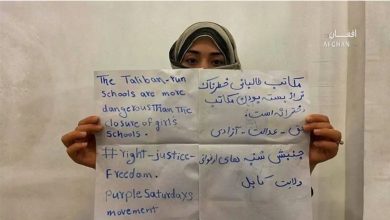 افغان
AFGHAN
The Taliban-run
schools are more
dangerous than the
closure of girls
schools.
#right-justice-
freedom.
purple saturdays
movement
مکاتب طالبانی خطرناک
تر از بسته بودن مکاتب
دخترانه است.
حق - عدالت - آزادی
جنبش شنبه های ارغوانی
ولایت کابل